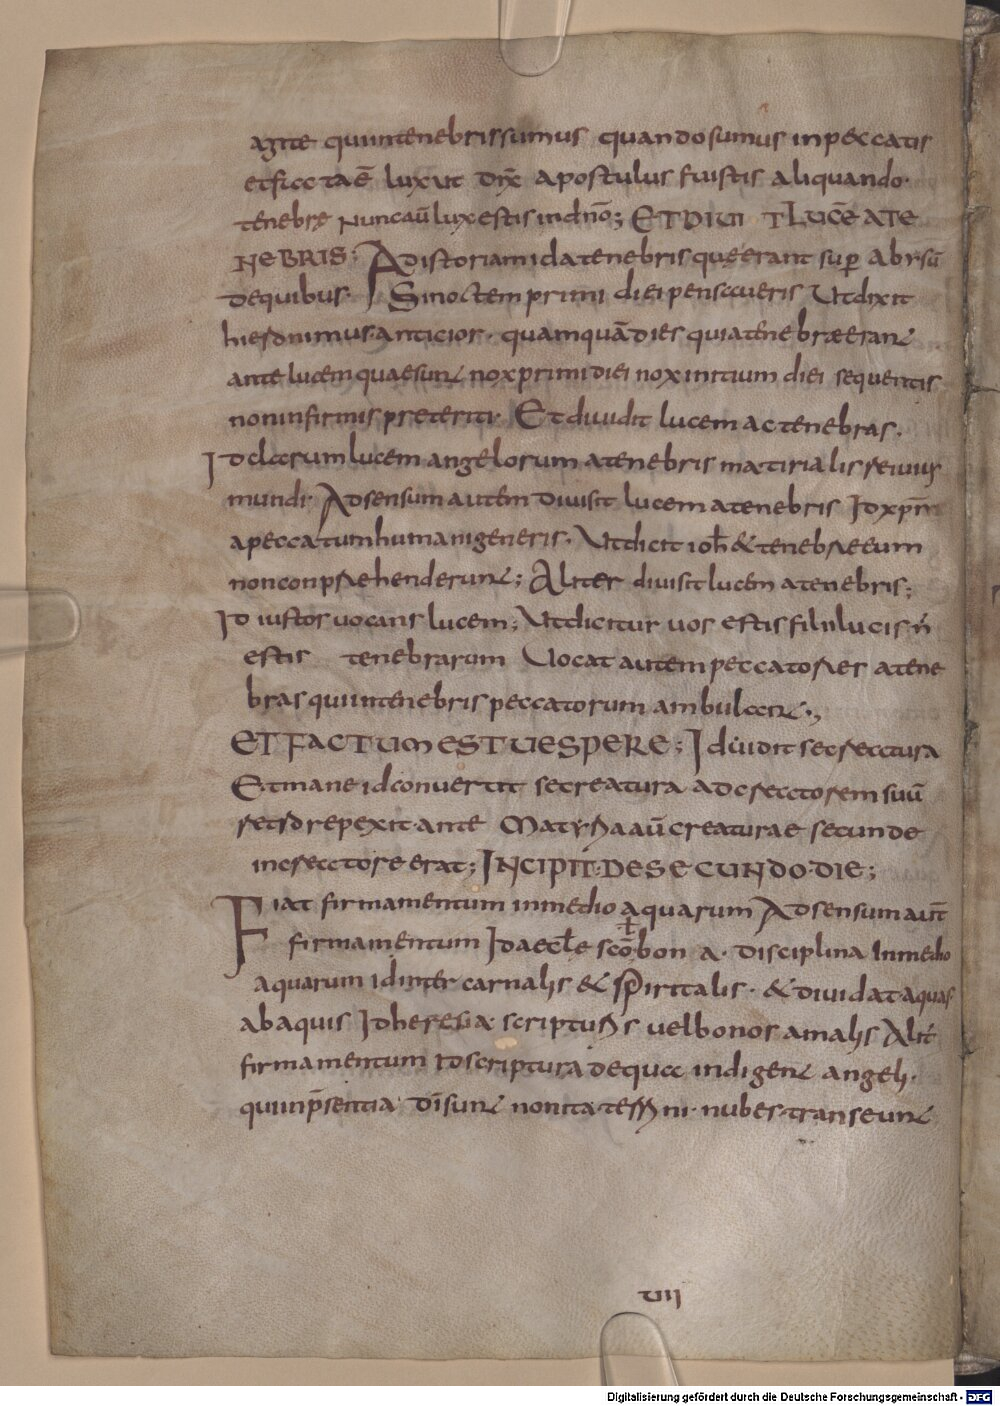 agite quiintenebrissumus quandosumus inpeccatis
etficc taē luxit dix apostulus fuistis aliquando·
tenebrę Nuncaū luxestis indnō; ET DIUI T LUCĒ ATE
NEBRIS· Adistoriam id atenebris quęerant sup abyssū
dequibus· Sinoctem primi diei penscueris Utdixit
hieronimus· anticior· quamquā dies quiatenebraeeranť
ante lucem quaesunt nox primi diei nox initium diei sequentis
noninfirmis preteriti· Et diuidit lucem actenebras.
Id claarum lucem angelorum atenebris matirialis reiuius
mundi· Adsensum autem diuisit lucem atenebris Id xpm̄
apeccatum humanigeneris. Utdicit ioh̄ & tenebrae eum
nonconpraehenderunt; Aliter diuisit lucem atenebris;
Id iustos uocans lucem; Utdicitur uos estis filii lucis n̄
estis tenebrarum Uocat autem peccatores atene
bras quiintenebris peccatorum ambulant.,
ET FACTUM EST UESPERE; Id diuidit se creatura
Et mane id conuertit se creatura adcreatorem suū
retrorepexit· ante Materia aū creaturae secunde
increatore erat; INCIPIT· DE SECUNDO· DIE;
Fiat firmamentum inmedio aquarum Adsensum aut̄
firmamentum Id aecl̄e scōbon a· disciplina Inmedio
aquarum id inter carnalis & spiritalis· & diuidat aquas
ab aquis Id heresi a scripturis uel bonos amalis Alit̄
firmamentum Id scriptura dequa indigent angeli·
quiinpsentia dīsunt nonita· terreni· nubes· transeunt
uii
Digitalisierung gefördert durch die Deutsche Forschungsgemeinschaft - DFG